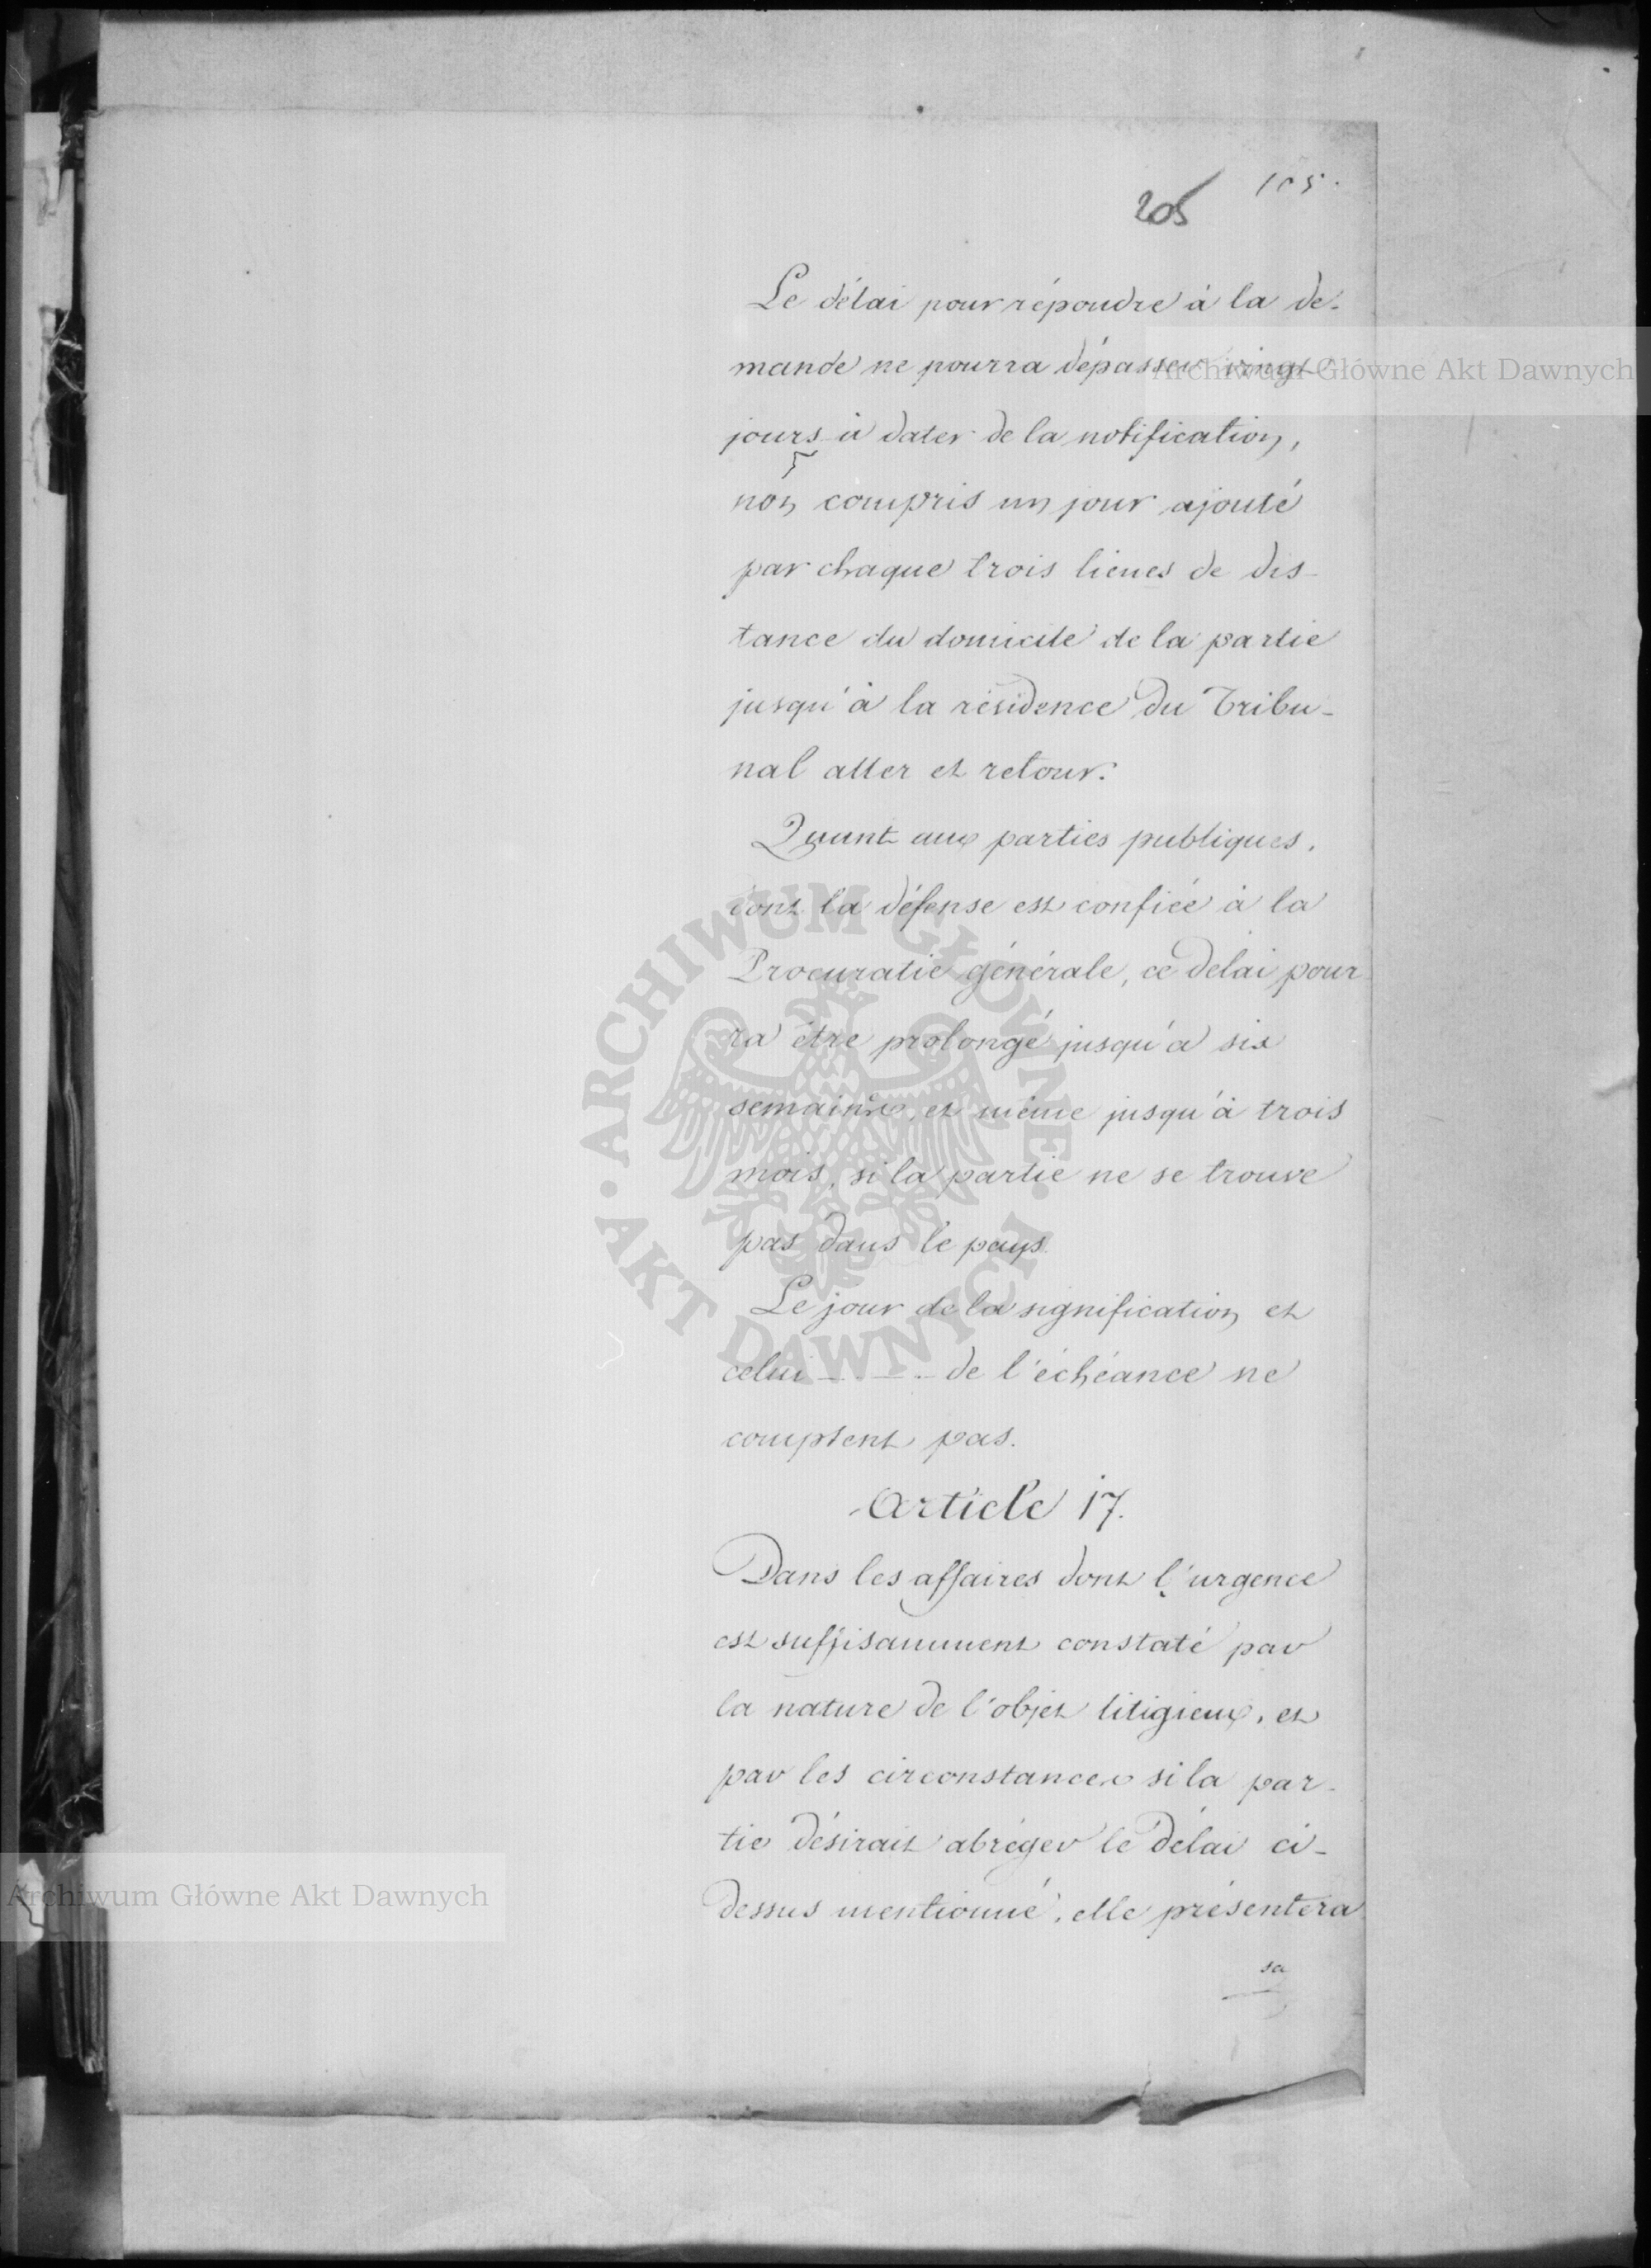 105.
205
Le délai pour répondre à la de-
mande ne pourra dépasser vingt
jours à dater de la notification,
non compris un jour ajouté
par chaque trois lieues de dis-
tance du domicile de la partie
jusqu'à la résidence du Tribu-
nal aller et retour.
Quant aux parties publiques,
dont la défense est confiée à la
Procuratie générale, ce délai pour
ra être prolongé jusqu'à six
semaines, et même jusqu'à trois
mois, si la partie ne se trouve
pas dans le pays.
Le jour de la signification et
celui - . - . - de l'échéance ne
comptent pas.
Article 17.
Dans les affaires dont l'urgence
est suffisamment constaté par
la nature de l'objet litigieux, et
par les circonstances si la par-
tie désirait abréger le délai ci-
dessus mentionné, elle présentera
sa
Archiwum Główne Akt Dawnych
ARCHIWUM GŁÓWNE · AKT DAWNYCH ·
Archiwum Główne Akt Dawnych